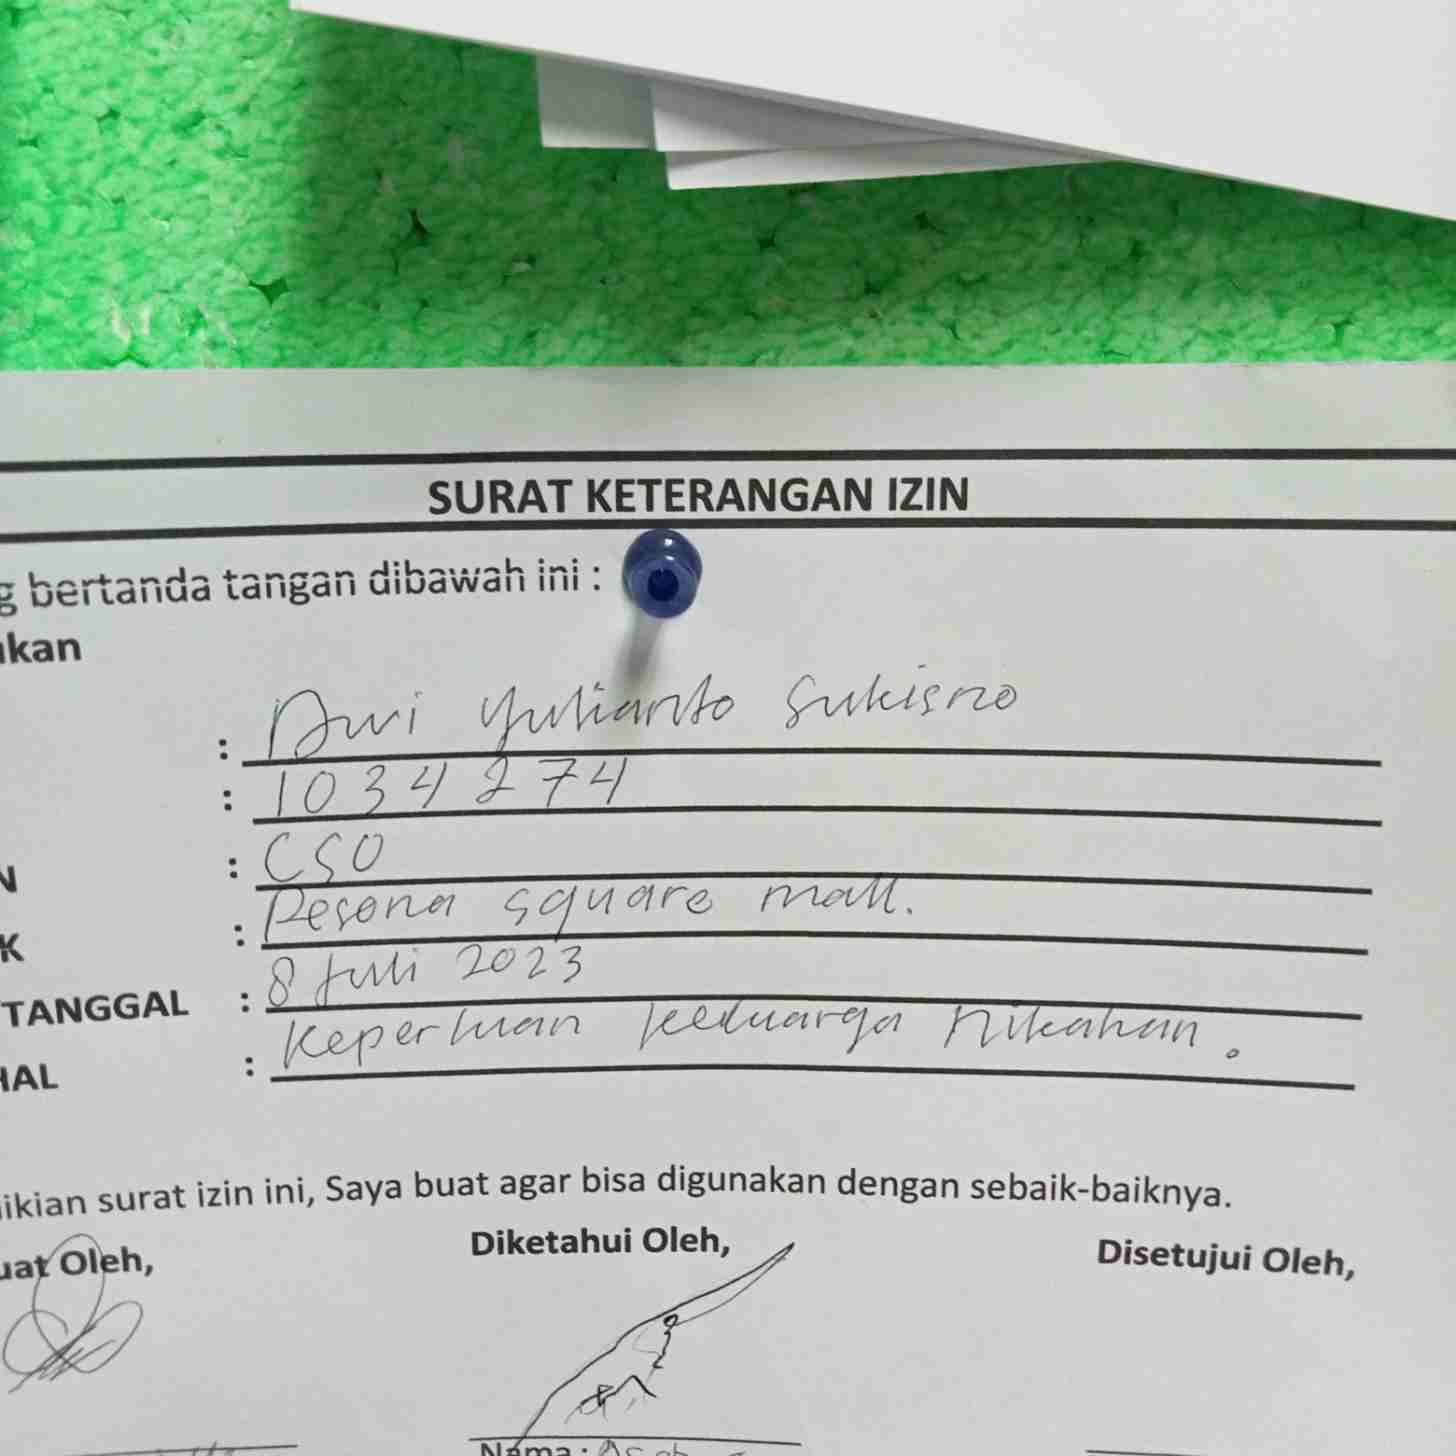 SURAT KETERANGAN IZIN
g bertanda tangan dibawah ini :
kan
: Dwi Yulianto Sukisno
: 1034274
N : CSO
K : Pesona square mall.
TANGGAL : 8 Juli 2023
HAL : Keperluan keluarga nikahan.
ikian surat izin ini, Saya buat agar bisa digunakan dengan sebaik-baiknya.
uat Oleh, Diketahui Oleh, Disetujui Oleh,
Nama :